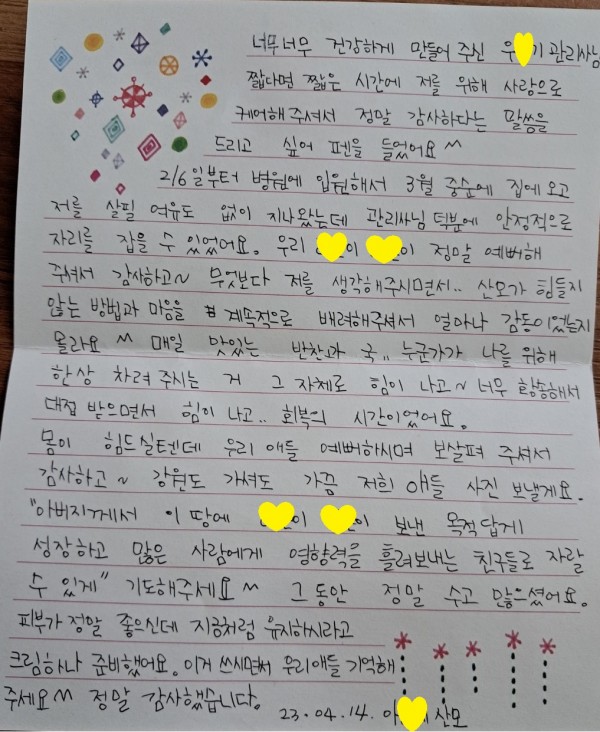 너무너무 건강하게 만들어 주신 우 기 관리사님
짧다면 짧은 시간에 저를 위해 사랑으로
케어해주셔서 정말 감사하다는 말씀을
드리고 싶어 펜을 들었어요^^
2/6일부터 병원에 입원해서 3월 중순에 집에 오고
저를 살필 여유도 없이 지나왔는데 관리사님 덕분에 안정적으로
자리를 잡을 수 있었어요. 우리 이 이 정말 예뻐해
주셔서 감사하고~ 무엇보다 저를 생각해주시면서.. 산모가 힘들지
않는 방법과 마음을 계속적으로 배려해주셔서 얼마나 감동이었는지
몰라요^^ 매일 맛있는 반찬과 국.. 누군가가 나를 위해
한상 차려 주시는 거 그 자체로 힘이 나고~ 너무 황송해서
대접 받으면서 힘이 나고.. 회복의 시간이었어요.
몸이 힘드실텐데 우리 애들 예뻐하시며 보살펴 주셔서
감사하고~ 강원도 가셔도 가끔 저희 애들 사진 보낼게요.
"아버지께서 이 땅에 이 이 보낸 목적답게
성장하고 많은 사람에게 영향력을 흘려보내는 친구들로 자랄
수 있게" 기도해주세요^^ 그동안 정말 수고 많으셨어요.
피부가 정말 좋으신데 지금처럼 유지하시라고
크림하나 준비했어요. 이거 쓰시면서 우리애들 기억해
주세요^^ 정말 감사했습니다.
23.04.14. 산모